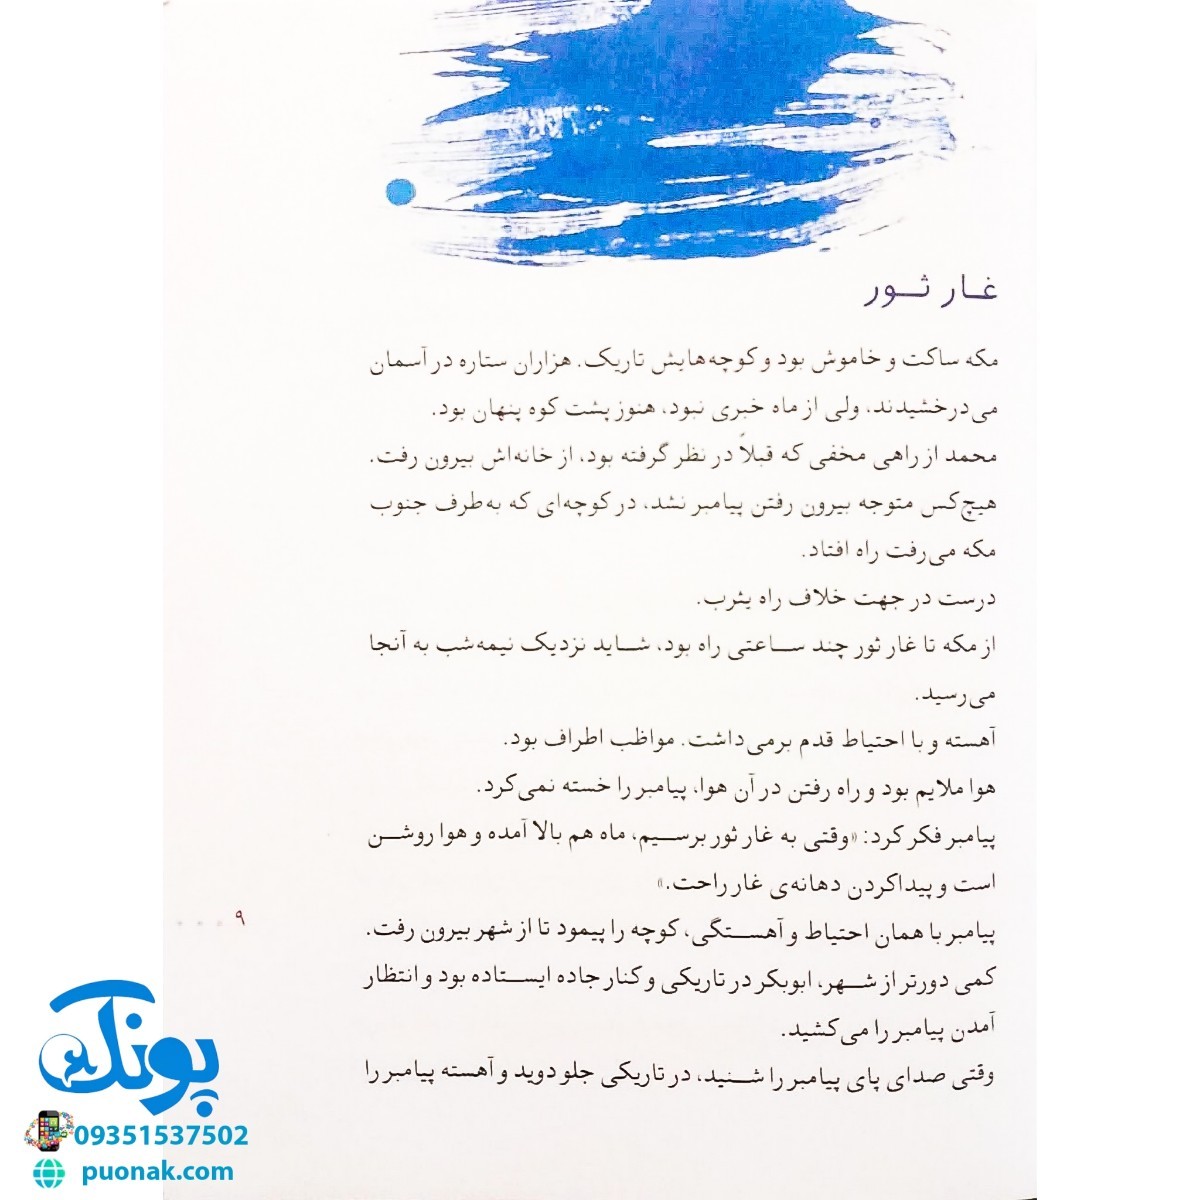 غار ثور
مکه ساکت و خاموش بود و کوچه‌هایش تاریک. هزاران ستاره در آسمان
می‌درخشیدند، ولی از ماه خبری نبود، هنوز پشت کوه پنهان بود.
محمد از راهی مخفی که قبلاً در نظر گرفته بود، از خانه‌اش بیرون رفت.
هیچ‌کس متوجه بیرون رفتن پیامبر نشد، در کوچه‌ای که به‌طرف جنوب
مکه می‌رفت راه افتاد.
درست در جهت خلاف راه یثرب.
از مکه تا غار ثور چند ساعتی راه بود، شاید نزدیک نیمه‌شب به آنجا
می‌رسید.
آهسته و با احتیاط قدم برمی‌داشت. مواظب اطراف بود.
هوا ملایم بود و راه رفتن در آن هوا، پیامبر را خسته نمی‌کرد.
پیامبر فکر کرد: «وقتی به غار ثور برسیم، ماه هم بالا آمده و هوا روشن
است و پیدا کردن دهانه‌ی غار راحت.»
پیامبر با همان احتیاط و آهستگی، کوچه را پیمود تا از شهر بیرون رفت.
کمی دورتر از شهر، ابوبکر در تاریکی و کنار جاده ایستاده بود و انتظار
آمدن پیامبر را می‌کشید.
وقتی صدای پای پیامبر را شنید، در تاریکی جلو دوید و آهسته پیامبر را
۹
پونک
09351537502
puonak.com